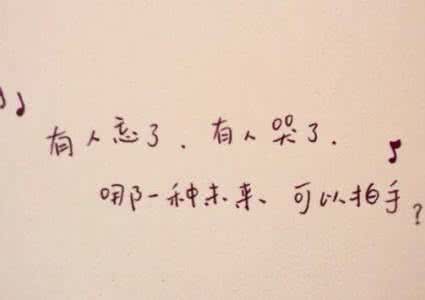 有人忘了、有人哭了.
哪一种未来、可以拍手?